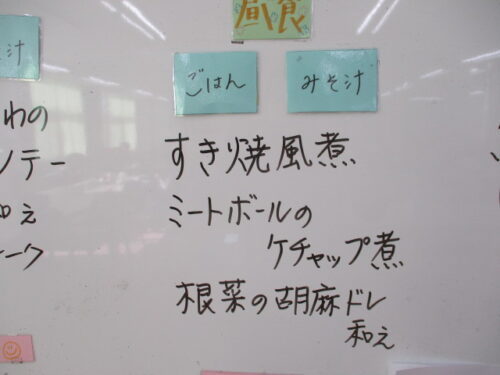 昼食
汁
ごはん
みそ汁
わの
ソテー
和え
ーク
すき焼風煮
ミートボールの
ケチャップ煮
根菜の胡麻ドレ
和え